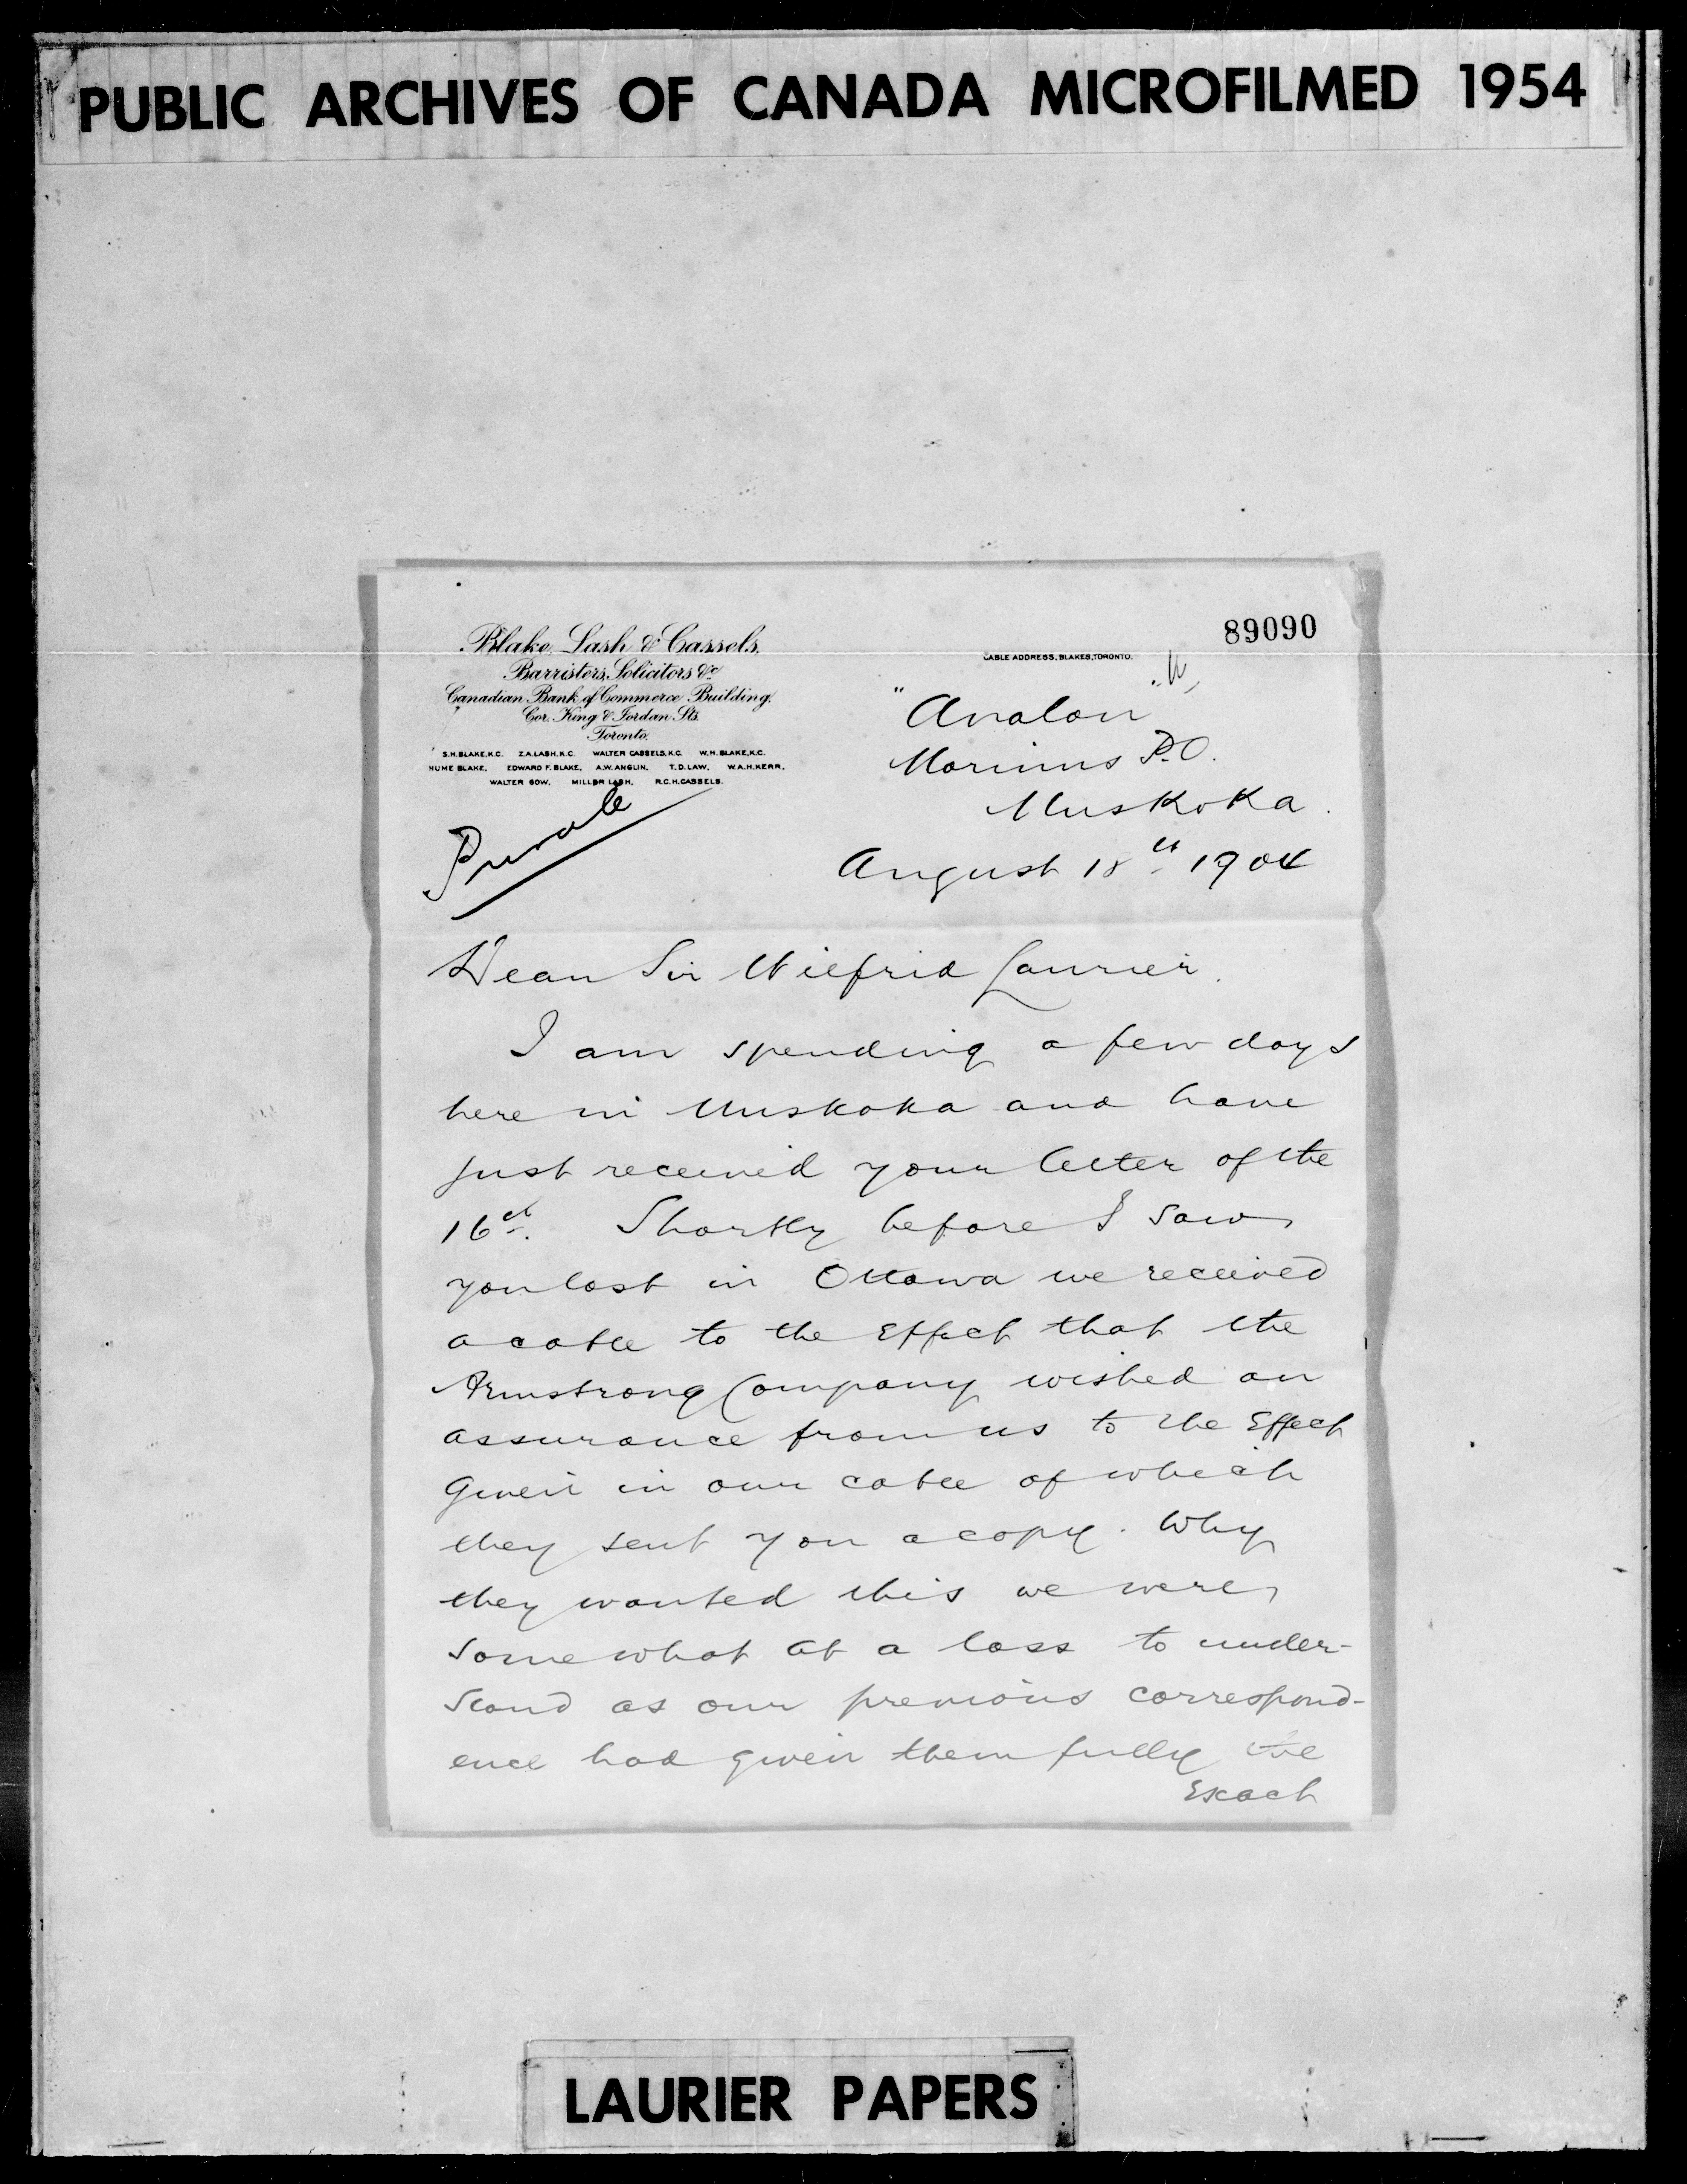 PUBLIC ARCHIVES OF CANADA MICROFILMED 1954
89090
Blake, Lash & Cassels,
Barristers, Solicitors &c
Canadian Bank of Commerce Building,
Cor. King & Jordan Sts.
Toronto.
S.H. BLAKE, K.C. Z.A. LASH, K.C. WALTER CASSELS, K.C. W.H. BLAKE, K.C.
HUME BLAKE, EDWARD F. BLAKE, A.W. ANGLIN, T.D. LAW, W.A.H. KERR,
WALTER GOW, MILLER LASH, R.C.H. CASSELS.
CABLE ADDRESS, BLAKES, TORONTO.
Private
"Avalon"
Morinus P.O.
Muskoka.
August 18th 1904
Dear Sir Wilfrid Laurier.
I am spending a few days
here in Muskoka and have
just received your letter of the
16th. Shortly before I saw
you last in Ottawa we received
a cable to the effect that the
Armstrong Company wished an
assurance from us to the effect
given in our cable of which
they sent you a copy. Why
they wanted this we were
somewhat at a loss to under-
stand as our previous correspond-
ence had given them fully the
exact
LAURIER PAPERS